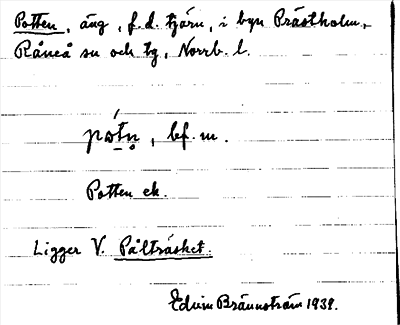 Potten, äng, f.d. tjärn, i byn Prästholm,
Råneå sn och tg, Norrb. l.
pọ́tṇ, bf. m.
Potten ek.
Ligger V. Pålträsket.
Edvin Brännström 1939.